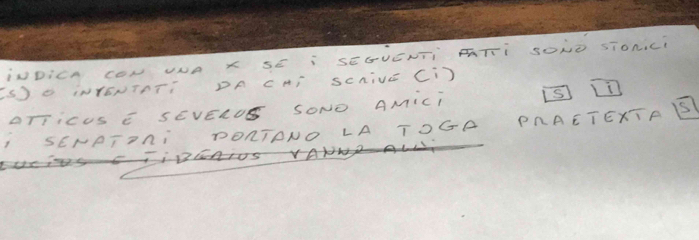 INDICA CON UNA X SE I SEGUENTI FATTI SONO STORICI
(S) O INVENTATI DA CHI SCRIVE (I)
ATTICUS E SEVERUS SONO AMICI S I
I SENATORI PORTANO LA TOGA PRAETEXTA S
LUCIUS E TIBERIUS VANNO